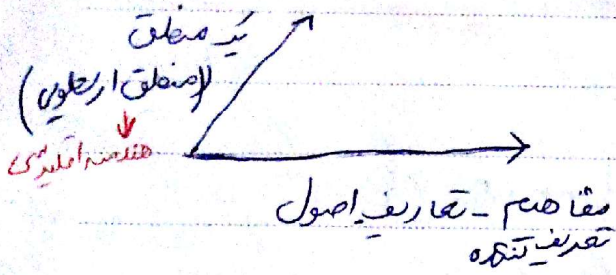 یک منطق
(منطق ارسطویی)
هندسه اقلیدسی
مفاهیم - تعاریف اصول
تعریف نشده